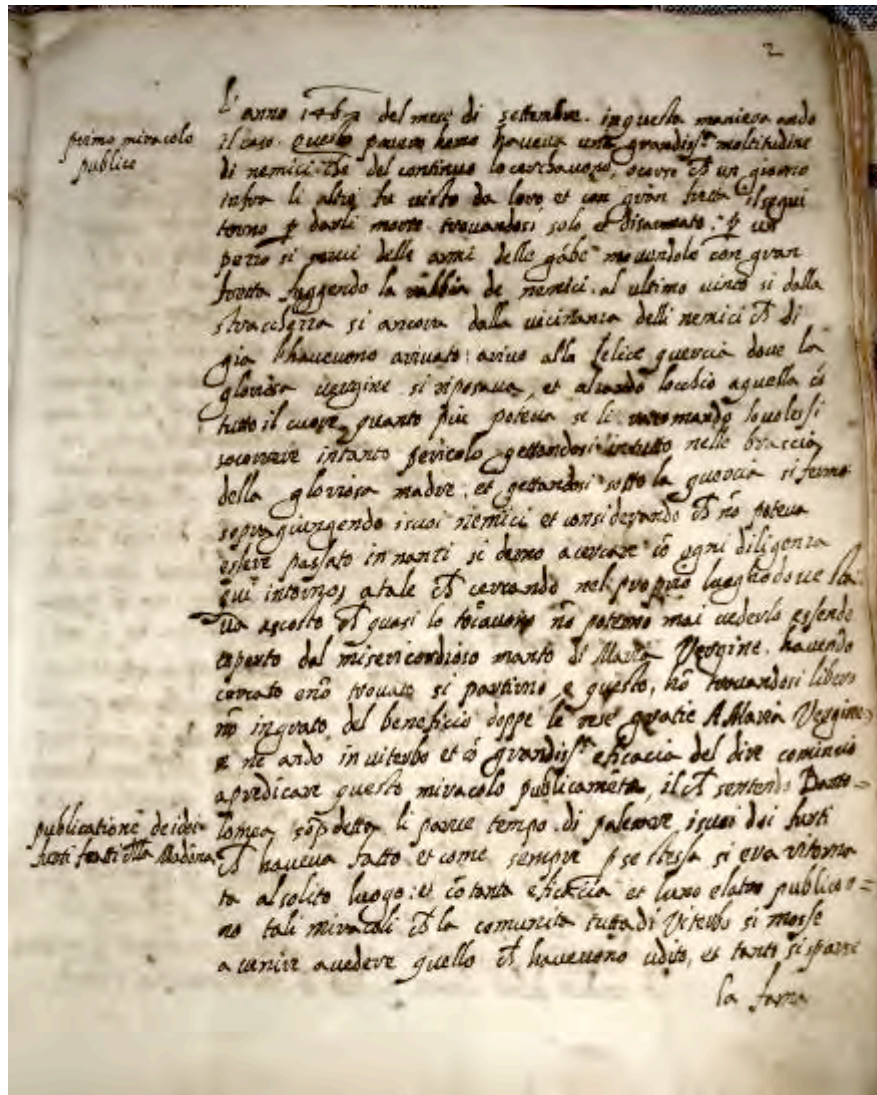 2
l'anno 1467 del mese di settembre. in questa maniera ando
primo miracolo
publico
il caso. Questo povero homo haveva una grandiss.ᵃ moltitudine
di nemici che del continuo lo cerchavono, ocorse ch un giorno
infra li altri fu visto da loro, et con gran furia il segui
torno p darli morte trovandosi solo et disarmato, p un
pezzo si servi delle armi delle gābe movendole con gran
fretta fuggendo la rabbia de nemici. al ultimo vinto si dalla
stracchezza si ancora dalla vicinanza delli nemici ch di
gia l'havevono arivato: arivo alla felice quercia dove la
gloriosa vergine si riposava, et alzando lochio aquella cō
tutto il cuore, quanto piu poteva se li racomandò lo volessi
socorrere intanto pericolo gettandosi intutto nelle braccia
della gloriosa madre, et gettandosi sotto la quercia si fermo
sopragiungendo isuoi nemici et considerando ch nō poteva
essere passato innanti si derno acercare cō ogni diligenza
qui intorno, atale ch cercando nel proprio luogho dove sta
va ascosto ch quasi lo tocavono nō poterno mai vederlo essendo
coperto dal misericordioso manto di Maria Vergine. havendo
cercato enō trovato si partirno, e questo, hō trovandosi libero
nō ingrato del beneficio doppo le rese gratie A Maria Vergine
se ne ando in viterbo et cō grandiss.ᵃ eficacia del dire cominciò
apredicare questo miracolo publicamēte, il ch sentendo Barto=
publicatione deidoi
furti fatti alla Madōna
lomea sopdetta li parve tempo di palesare isuoi doi furti
ch haveva fatto et come sempre p se stessa si era ritorna
ta al solito luogo: et cō tanta eficacia et luno elatro publicor=
no tali miracoli ch la comunita tutta di Viterbo si mosse
a venire avedere quello ch havevono udito, et tanto si sparse
la fama